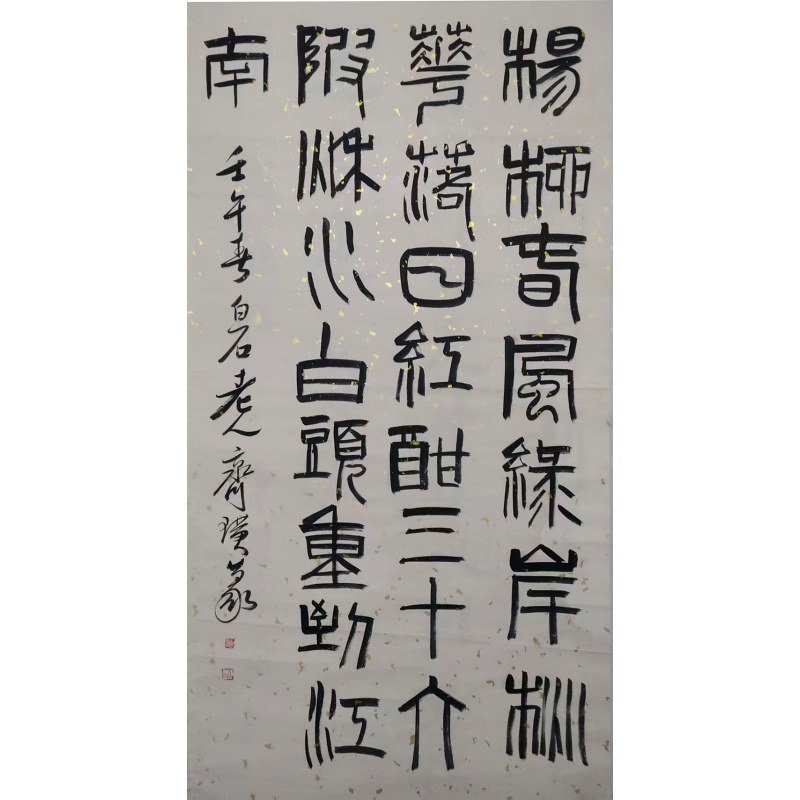 楊柳春風綠岸
華落日紅酣三十六
陂秋水白頭重到江
南
壬午春白石老人齊璜篆